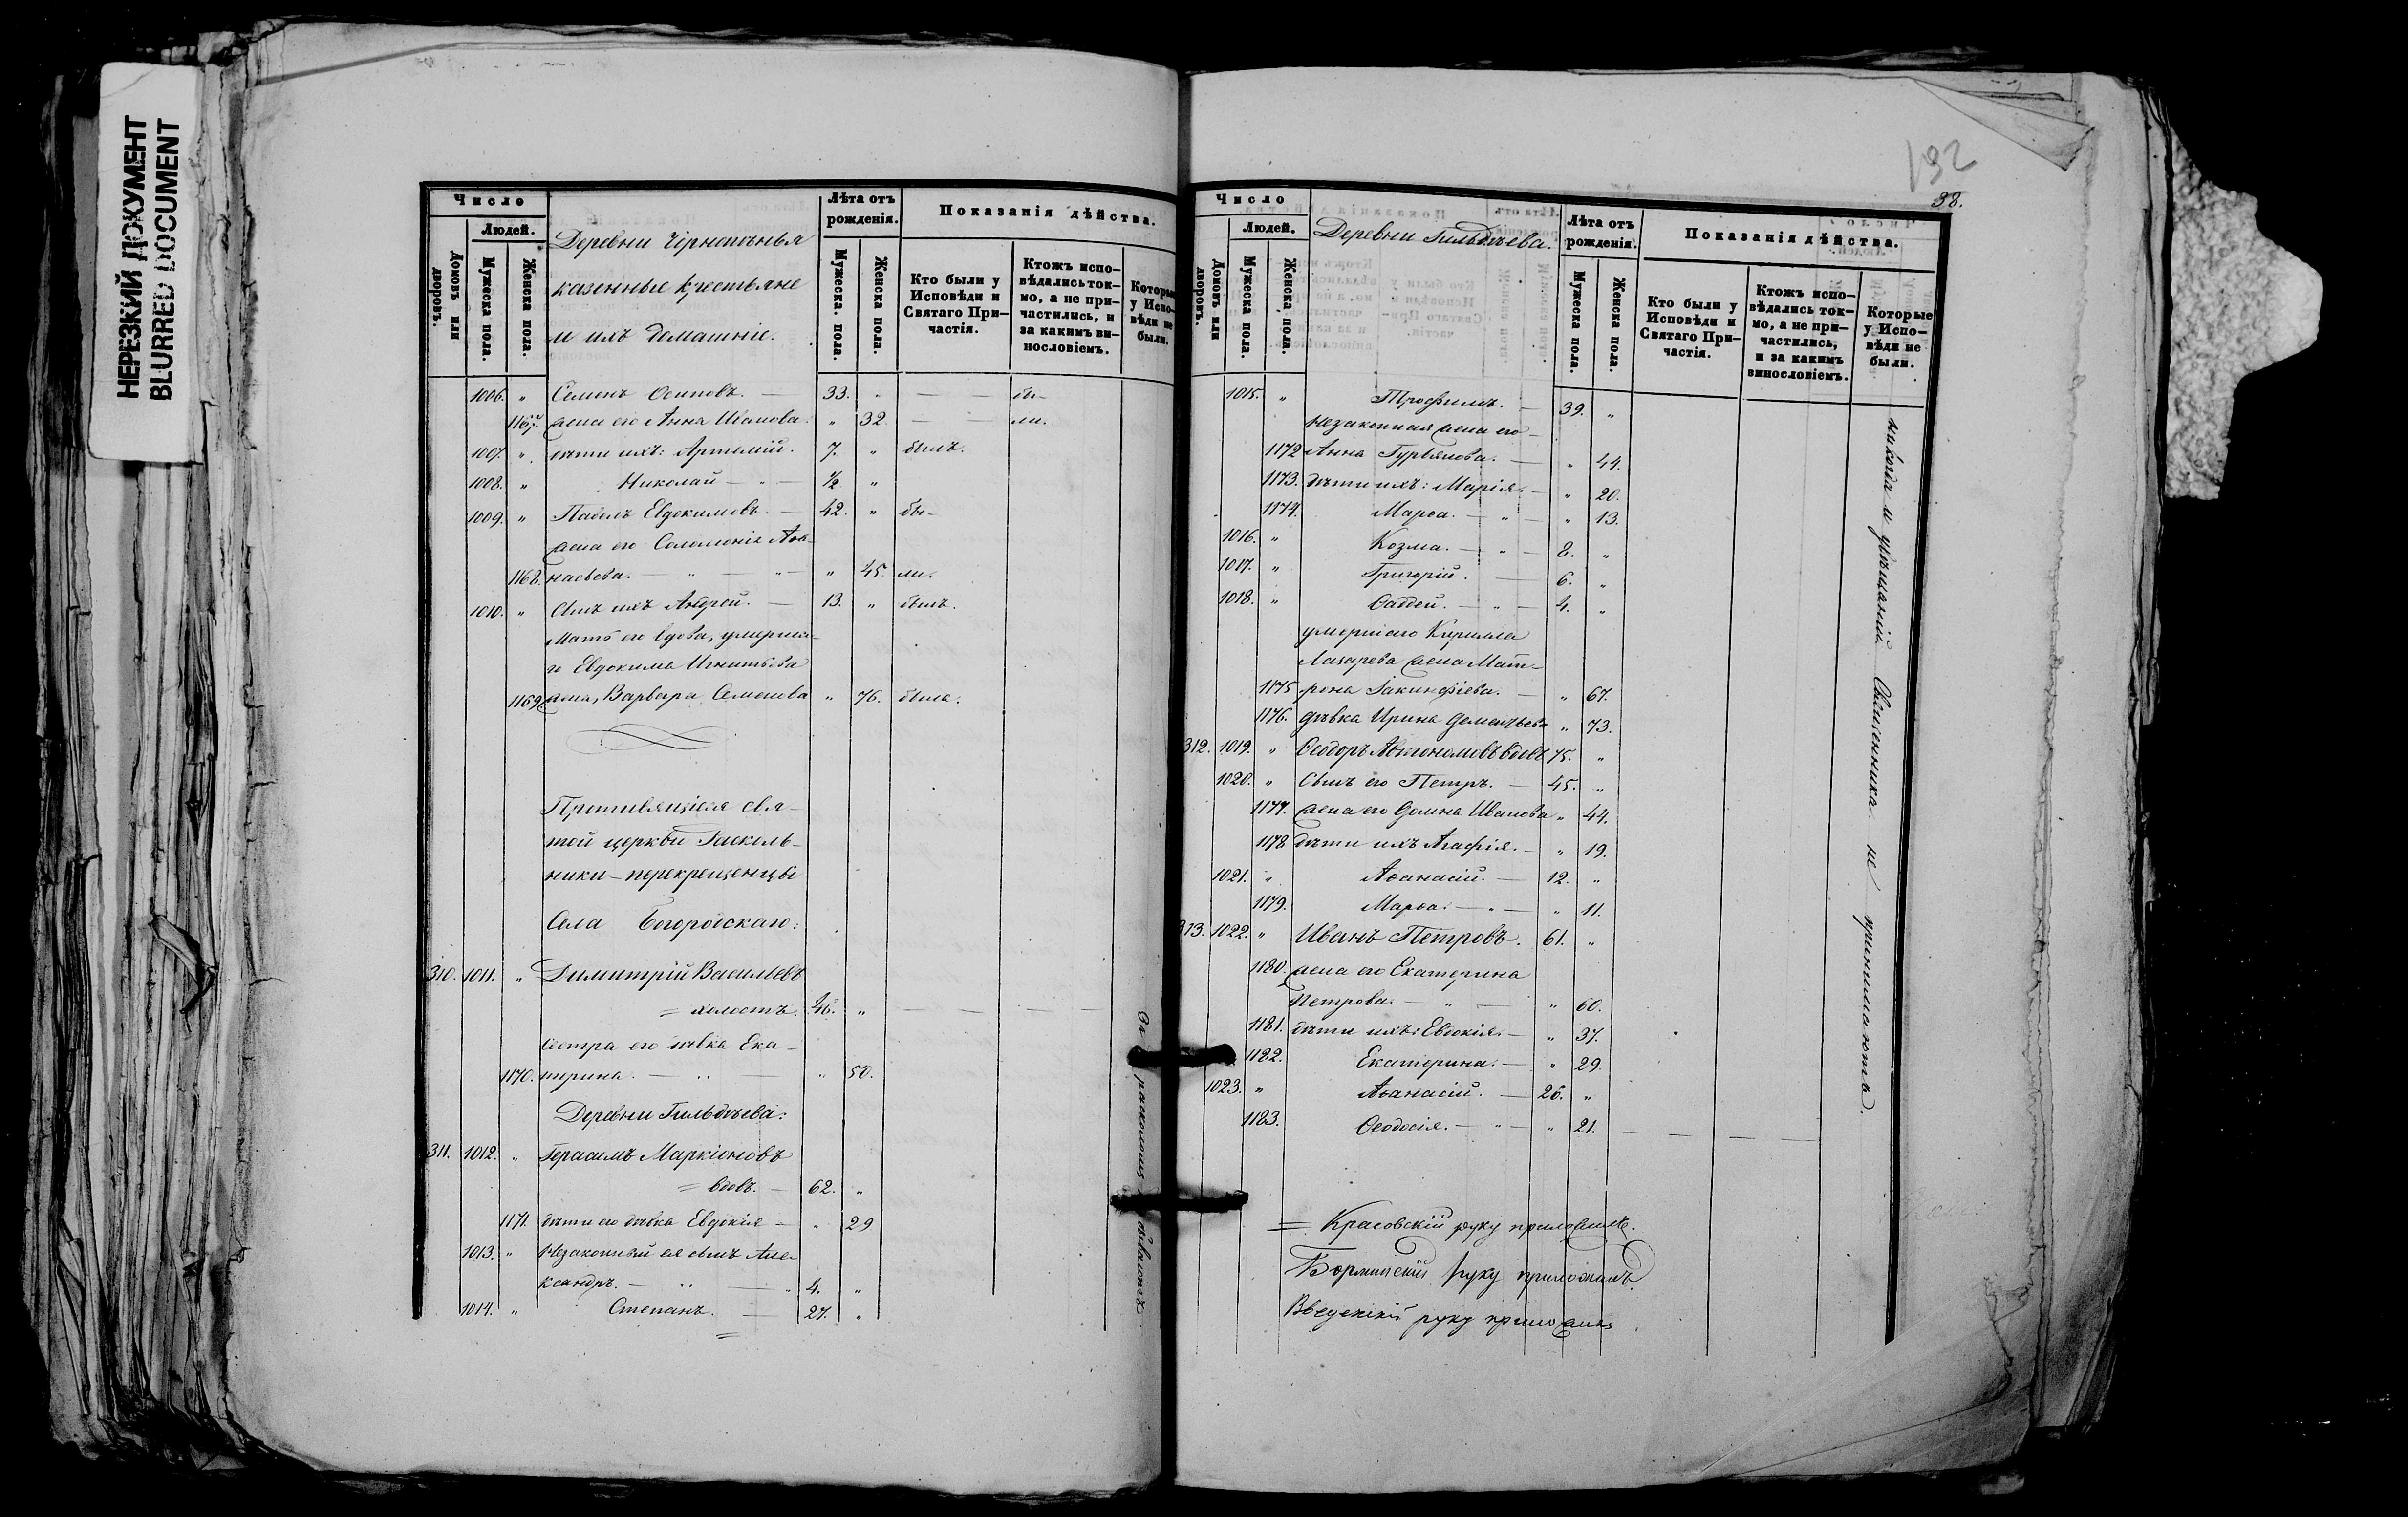 НЕРЕЗКИЙ ДОКУМЕНТ
BLURRED DOCUMENT
Число
Людей.
Домовъ или дворовъ.
Мужеска пола.
Женска пола.
Деревни
казенные крестьяне
и ихъ домашніе.
Лѣта отъ рожденія.
Мужеска пола.
Женска пола.
Показанія дѣйства.
Кто были у Исповѣди и Святаго При-частія.
Ктожъ испо-вѣдались ток-мо, а не при-частились, и за какимъ ви-нословіемъ.
Которые у Испо-вѣди не были.
1006. " Семенъ Осиповъ. — 33. " — — бы-
1167. жена его Анна Иванова. " 32. — — ли.
1007. " дѣти ихъ: Артемій. 7. " былъ.
1008. " Николай — " — ½ "
1009. " Павелъ Евдокимовъ. — 42. " бы-
жена его Соломонія Аѳа-
1168. насьева. — " — " — " 45. ли.
1010. " Сынъ ихъ Андрей. — 13. " былъ.
Мать его вдова, умерша-
го Евдокима Игнатьева
1169. жена, Варвара Семенова " 76. была.
Противящіеся свя-
той церкви Расколь-
ники — перекрещенцы
Села Богородскаго:
310. 1011. " Димитрій Васильевъ
= холостъ. 46. " — — — —
Сестра его дѣвка Ека-
1170. терина. — " — " 50.
Деревни Гильдѣева:
311. 1012. " Герасимъ Маркіоновъ
= вдовъ. — 62. "
1171. дѣти его дѣвка Евдокія — " 29
1013. " Незаконный ея сынъ Але-
ксандръ. — " — " 4. "
1014. " Степанъ. — 27. "
=
192
38.
Число
Людей.
Домовъ или дворовъ.
Мужеска пола.
Женска пола.
Деревни Гильдѣева.
Лѣта отъ рожденія.
Мужеска пола.
Женска пола.
Показанія дѣйства.
Кто были у Исповѣди и Святаго При-частія.
Ктожъ испо-вѣдались ток-мо, а не при-частились, и за какимъ винословіемъ.
Которые у Испо-вѣди не были.
1015. " Трофимъ. — 39. "
незаконная жена его —
1172 Анна Гурьянова. — " 44.
1173. дѣти ихъ: Марія. — " 20.
1174. Марѳа. — " — " 13.
1016. " Козма. — " — 8. "
1017. " Григорій. — 6. "
1018. " Ѳаддей. — " — 4. "
умершаго Кирилла
Лазарева жена Мат-
1175 рона Іакинфіева. — " 67.
1176. дѣвка Ирина Дементьева " 73.
312. 1019. " Ѳеодоръ Автономовъ вдовъ 75. "
1020. " Сынъ его Петръ. — 45. "
1177. жена его Домна Иванова " 44.
1178 дѣти ихъ Агафія. — " 19.
1021. " Аѳанасій. — 12. "
1179. Марѳа. — " — " 11.
313. 1022. " Иванъ Петровъ. 61. "
1180. жена его Екатерина
Петрова. — " — " 60.
1181. дѣти ихъ: Евдокія. — " 37.
1182. Екатерина. — " 29.
1023. " Аѳанасій. — 26. "
1183. Ѳеодосія. — " — " 21. — — — —
За расколомъ
никогда и увѣщаній Священника не принимаютъ.
= Красовскій руку приложилъ.
руку приложилъ.
Введенскій руку приложилъ